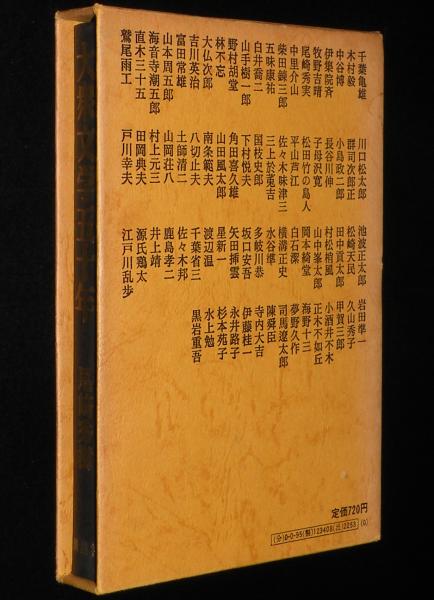 千葉亀雄 川口松太郎 池波正太郎 岩田準一
木村毅 群司次郎正 松崎天民 久山秀子
中谷博 小島政二郎 田中貢太郎 甲賀三郎
伊集院斉 長谷川伸 村松梢風 小酒井不木
牧野吉晴 子母沢寛 山中峯太郎 正木不如丘
尾崎秀実 松田竹の島人 岡本綺堂 海野十三
中里介山 平山芦江 白石潔 夢野久作
柴田錬三郎 佐々木味津三 横溝正史 司馬遼太郎
五味康祐 三上於菟吉 水谷準 陳舜臣
白井喬二 国枝史郎 多岐川恭 寺内大吉
山手樹一郎 下村悦夫 坂口安吾 伊藤桂一
野村胡堂 角田喜久雄 矢田挿雲 永井路子
林不忘 山田風太郎 星新一 杉本苑子
大仏次郎 南条範夫 渡辺温 水上勉
吉川英治 八切止夫 千葉省三 黒岩重吾
富田常雄 土師清二 佐々木邦
山本周五郎 山岡荘八 鹿島孝二
海音寺潮五郎 村上元三 井上靖
直木三十五 田岡典夫 源氏鶏太
鷲尾雨工 戸川幸夫 江戸川乱歩
定価720円
(分)0-0-95(製)123408(出)2253 (0)